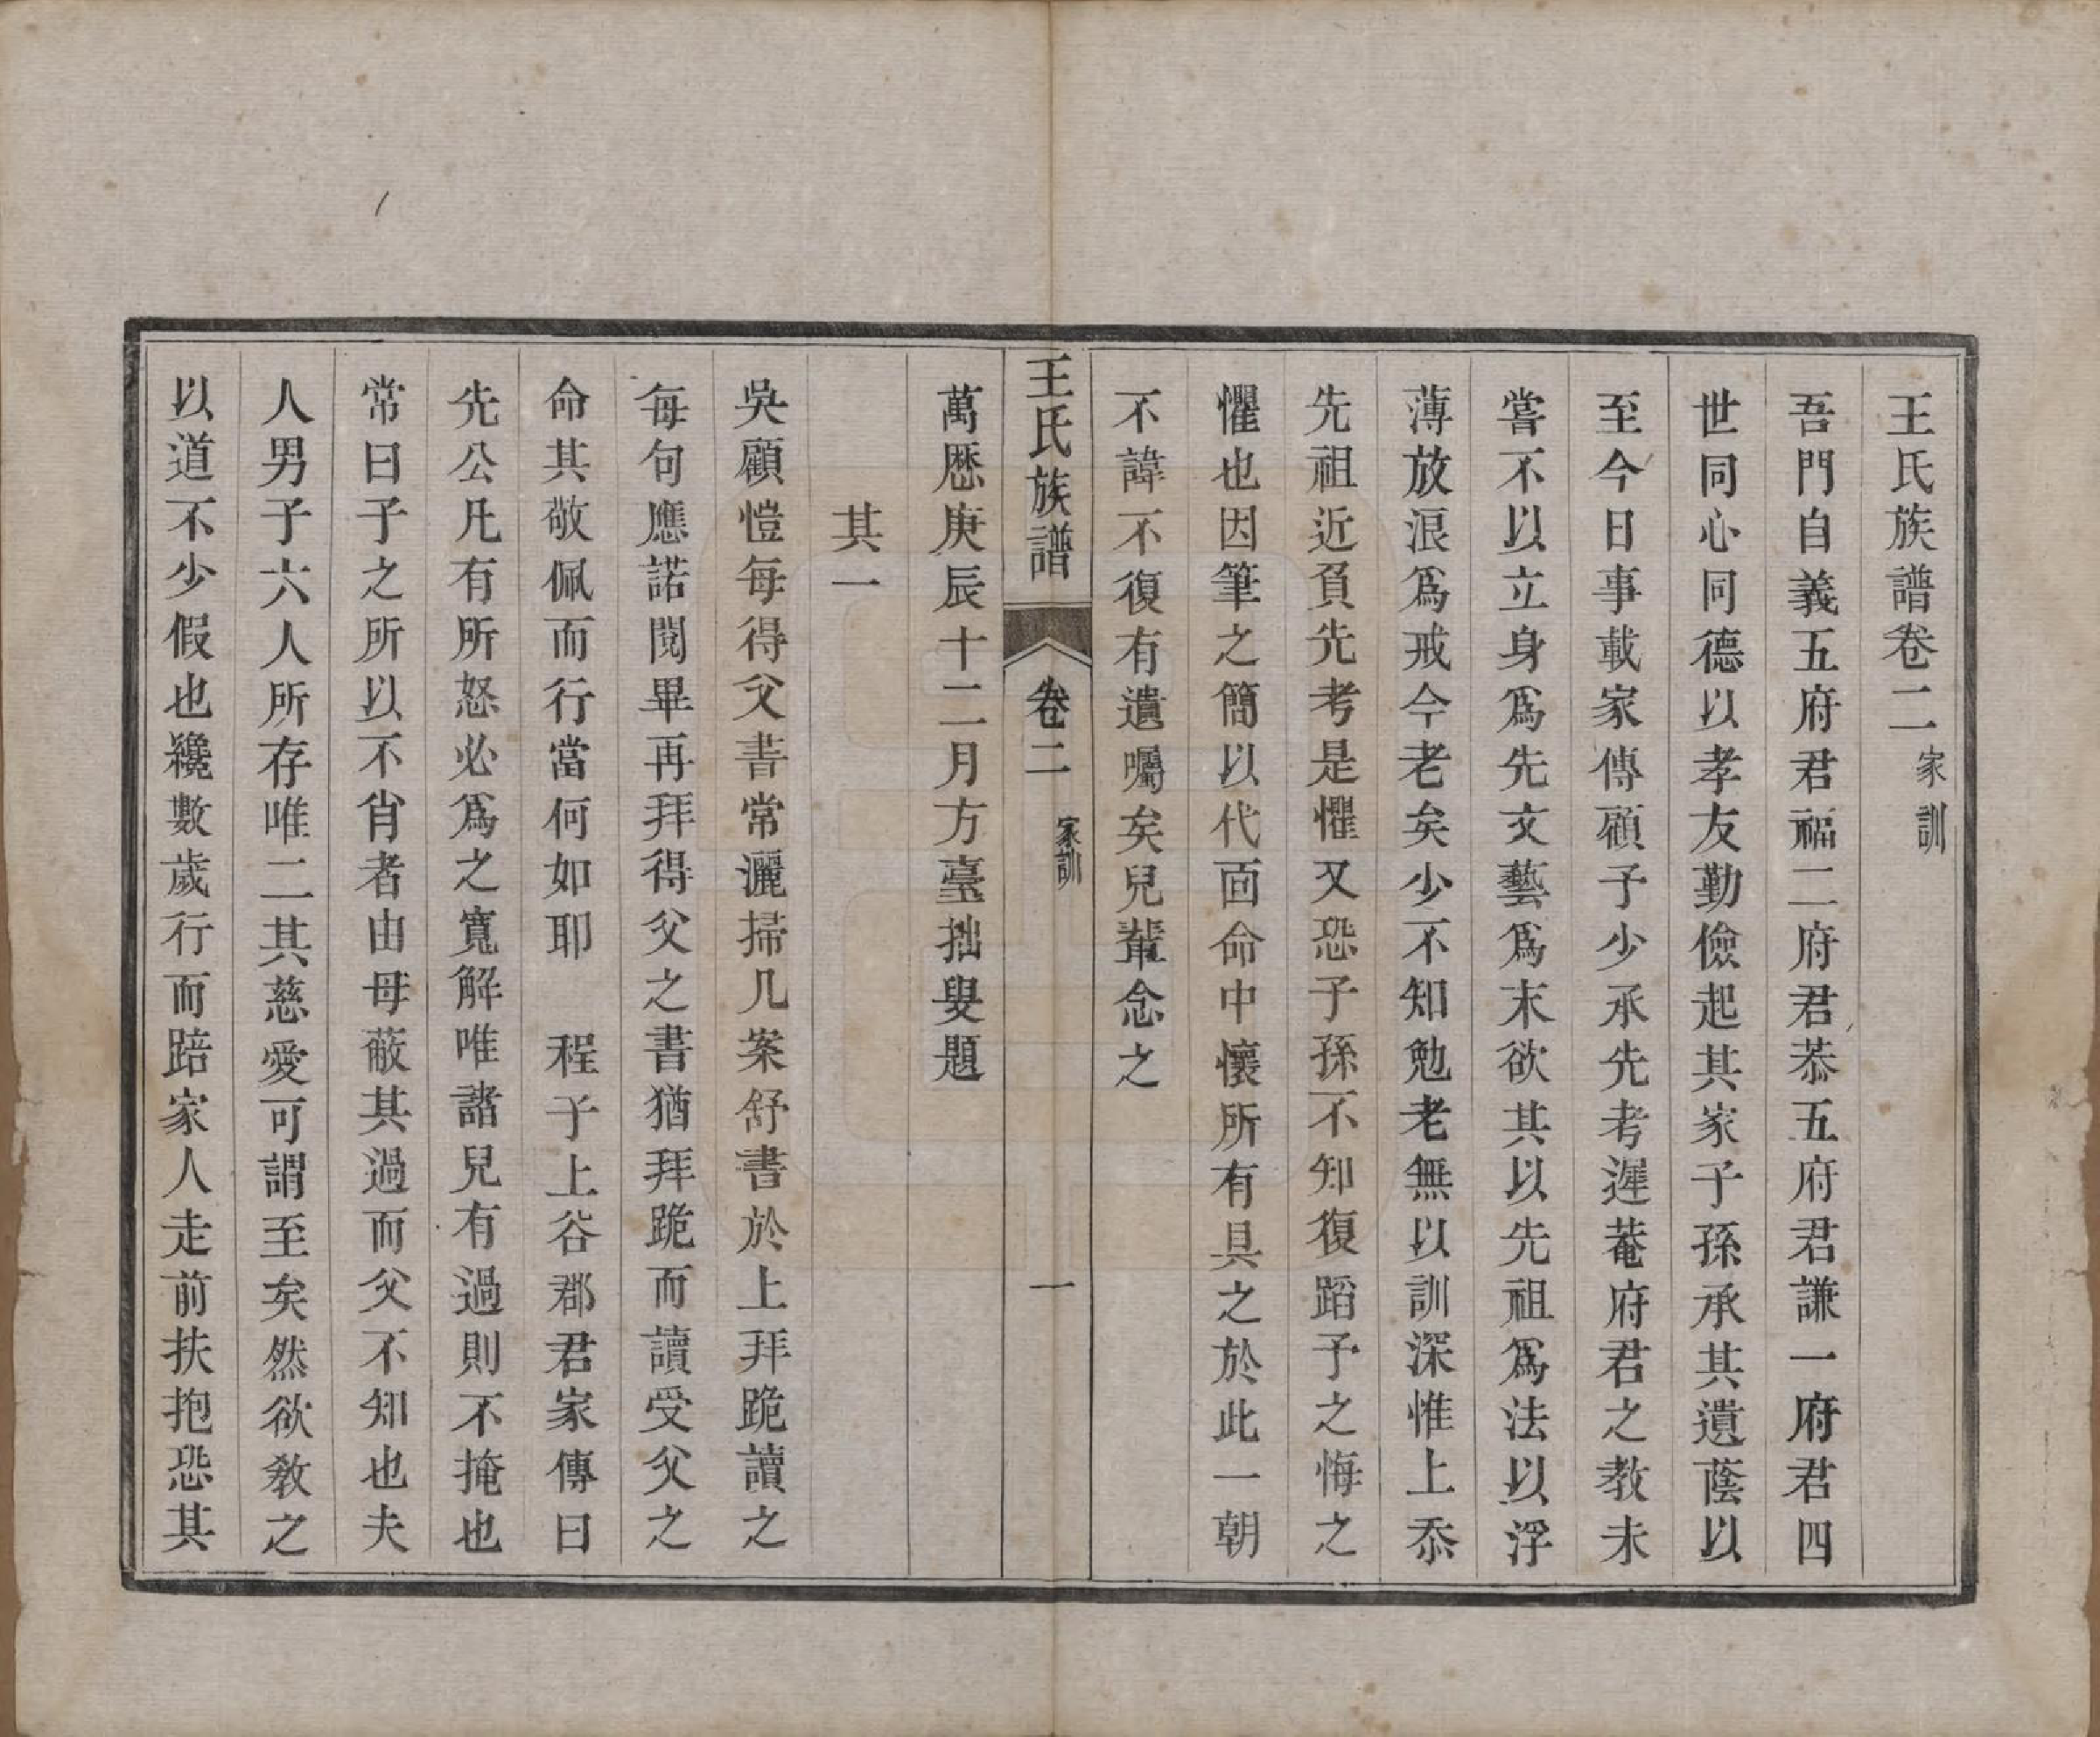 王氏族譜卷二 家訓
吾門自義五府君福二府君恭五府君謙一府君四
世同心同德以孝友勤儉起其家子孫承其遺蔭以
至今日事載家傳顧予少承先考遲菴府君之教未
嘗不以立身爲先文藝爲末欲其以先祖爲法以浮
薄放浪爲戒今老矣少不知勉老無以訓深惟上忝
先祖近負先考是懼又恐子孫不知復蹈予之悔之
懼也因筆之簡以代面命中懷所有具之於此一朝
不諱不復有遺囑矣兒輩念之
王氏族譜 卷二 家訓 一
萬厯庚辰十二月方臺拙叟題
其一
吳顧愷每得父書常灑掃几案舒書於上拜跪讀之
每句應諾閱畢再拜得父之書猶拜跪而讀受父之
命其敬佩而行當何如耶　程子上谷郡君家傳曰
先公凡有所怒必爲之寬解唯諸兒有過則不掩也
常曰子之所以不肖者由母蔽其過而父不知也夫
人男子六人所存唯二其慈愛可謂至矣然欲教之
以道不少假也纔數歲行而踣家人走前扶抱恐其